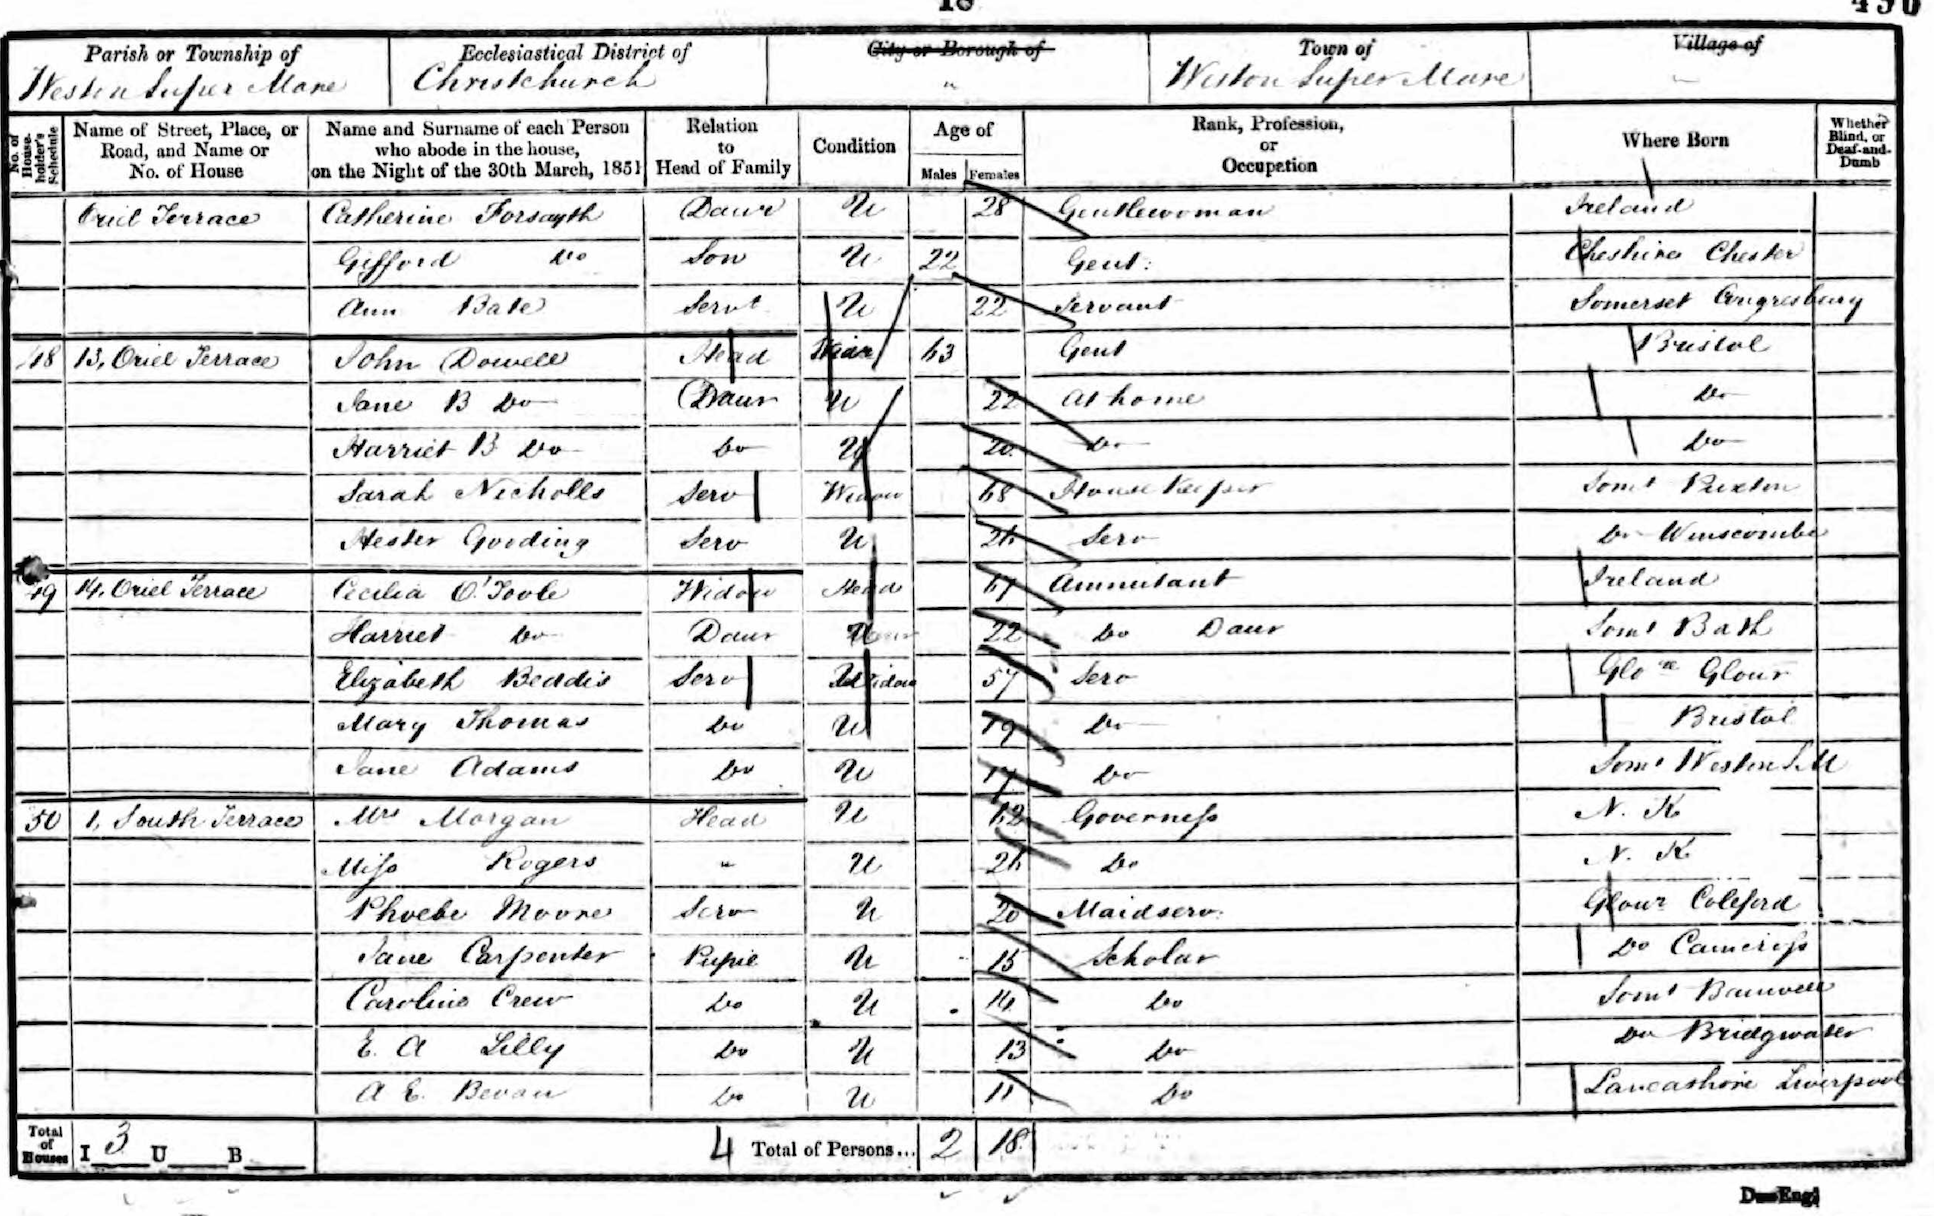 18
Parish or Township of Ecclesiastical District of City or Borough of Town of Village of
Weston Super Mare Christchurch " Weston Super Mare
No. of House-holder's Schedule Name of Street, Place, or Road, and Name or No. of House Name and Surname of each Person who abode in the house, on the Night of the 30th March, 1851 Relation to Head of Family Condition Age of Males Females Rank, Profession, or Occupation Where Born Whether Blind, or Deaf-and-Dumb
Oriel Terrace Catherine Forsayth Daur U 28 Gentlewoman Ireland
Gifford Do Son U 22 Gent: Cheshire Chester
Ann Bate Servt U 22 Servant Somerset Congresbury
48 13, Oriel Terrace John Dowell Head 63 Gent Bristol
Jane B Do Daur U 22 At home Do
Harriet B Do Do U 20 Do Do
Sarah Nicholls Serv Widow 68 House Keeper Somt Puxton
Hester Gooding Serv U 26 Serv Do Winscombe
49 14, Oriel Terrace Cecilia O'Toole Widow Head 67 Annuitant Ireland
Harriet Do Daur U 22 Do Daur Somt Bath
Elizabeth Beddis Serv Widow 57 Serv Glour
Mary Thomas Do U 19 Do Bristol
Jane Adams Do U 17 Do Somt Weston S.M
50 1, South Terrace Mrs Morgan Head U 62 Governess N. K
Miss Rogers " U 26 Do N. K
Phoebe Moore Serv U 20 Maidserv: Glour Coleford
Jane Carpenter Pupil U 15 Scholar Do
Caroline Crew Do U 14 Do Somt Banwell
E. A Lilly Do U 13 Do Do Bridgwater
A E. Bevan Do U 11 Do Lancashire Liverpool
Total of Houses I 3 U B 4 Total of Persons... 2 18